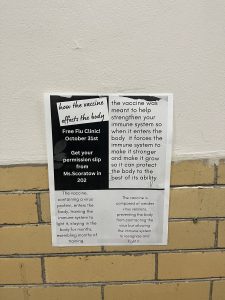 how the vaccine
affects the body
Free Flu Clinic!
October 31st
Get your
permission slip
from
Ms.Scoratow in
202
the vaccine was
meant to help
strengthen your
immune system so
when it enters the
body it forces the
immune system to
make it stronger
and make it grow
so it can protect
the body to the
best of its ability
The vaccine,
containing a virus
protein, enters the
body, training the
immune system to
fight it, staying in the
body for months,
training
The vaccine is
composed of weaker
virus versions,
preventing the body
from contracting the
virus but allowing
the immune system
to recognize and
fight it